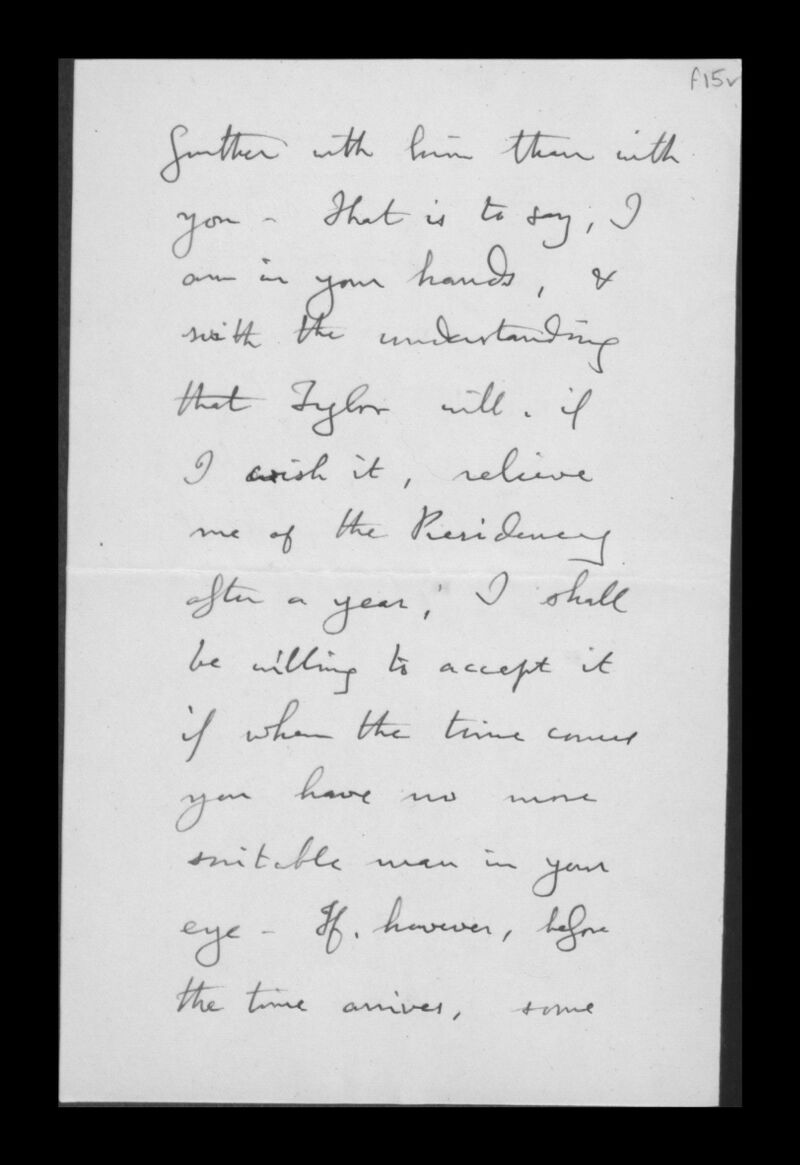 f15v
further with him than with
you - That is to say, I
am in your hands, &
with the understanding
that Tylor will, if
I wish it, relieve
me of the Presidency
after a year, I shall
be willing to accept it
if when the time comes
you have no more
suitable man in your
eye - If, however, before
the time arrives, some